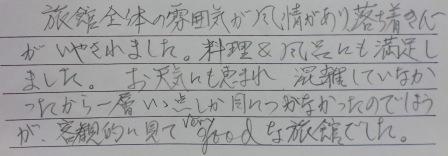 旅館全体の雰囲気が風情があり落ち着きん
がいやされました。料理&風呂にも満足し
ました。お天気にも恵まれ 混雑していなか
ったから一層いい点しか目につかなかったのでしょう
が、客観的に見てvery goodな旅館でした。